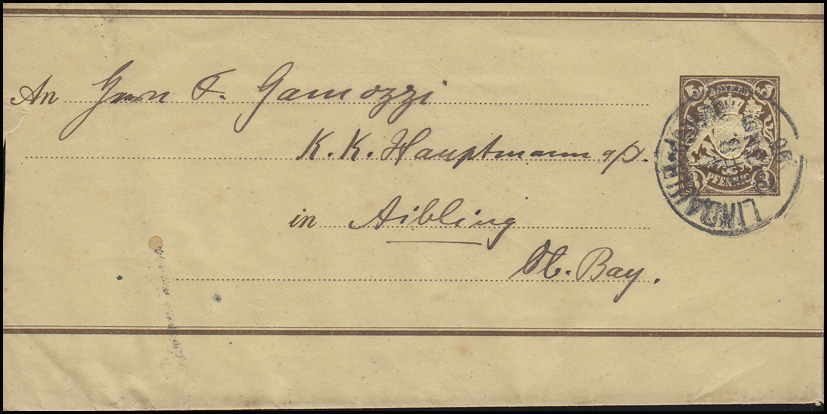 An Herrn F. Gamozzi
K. K. Hauptmann a/D.
in Aibling
Ob. Bay.
3 3
PFENNIG
LINDAU